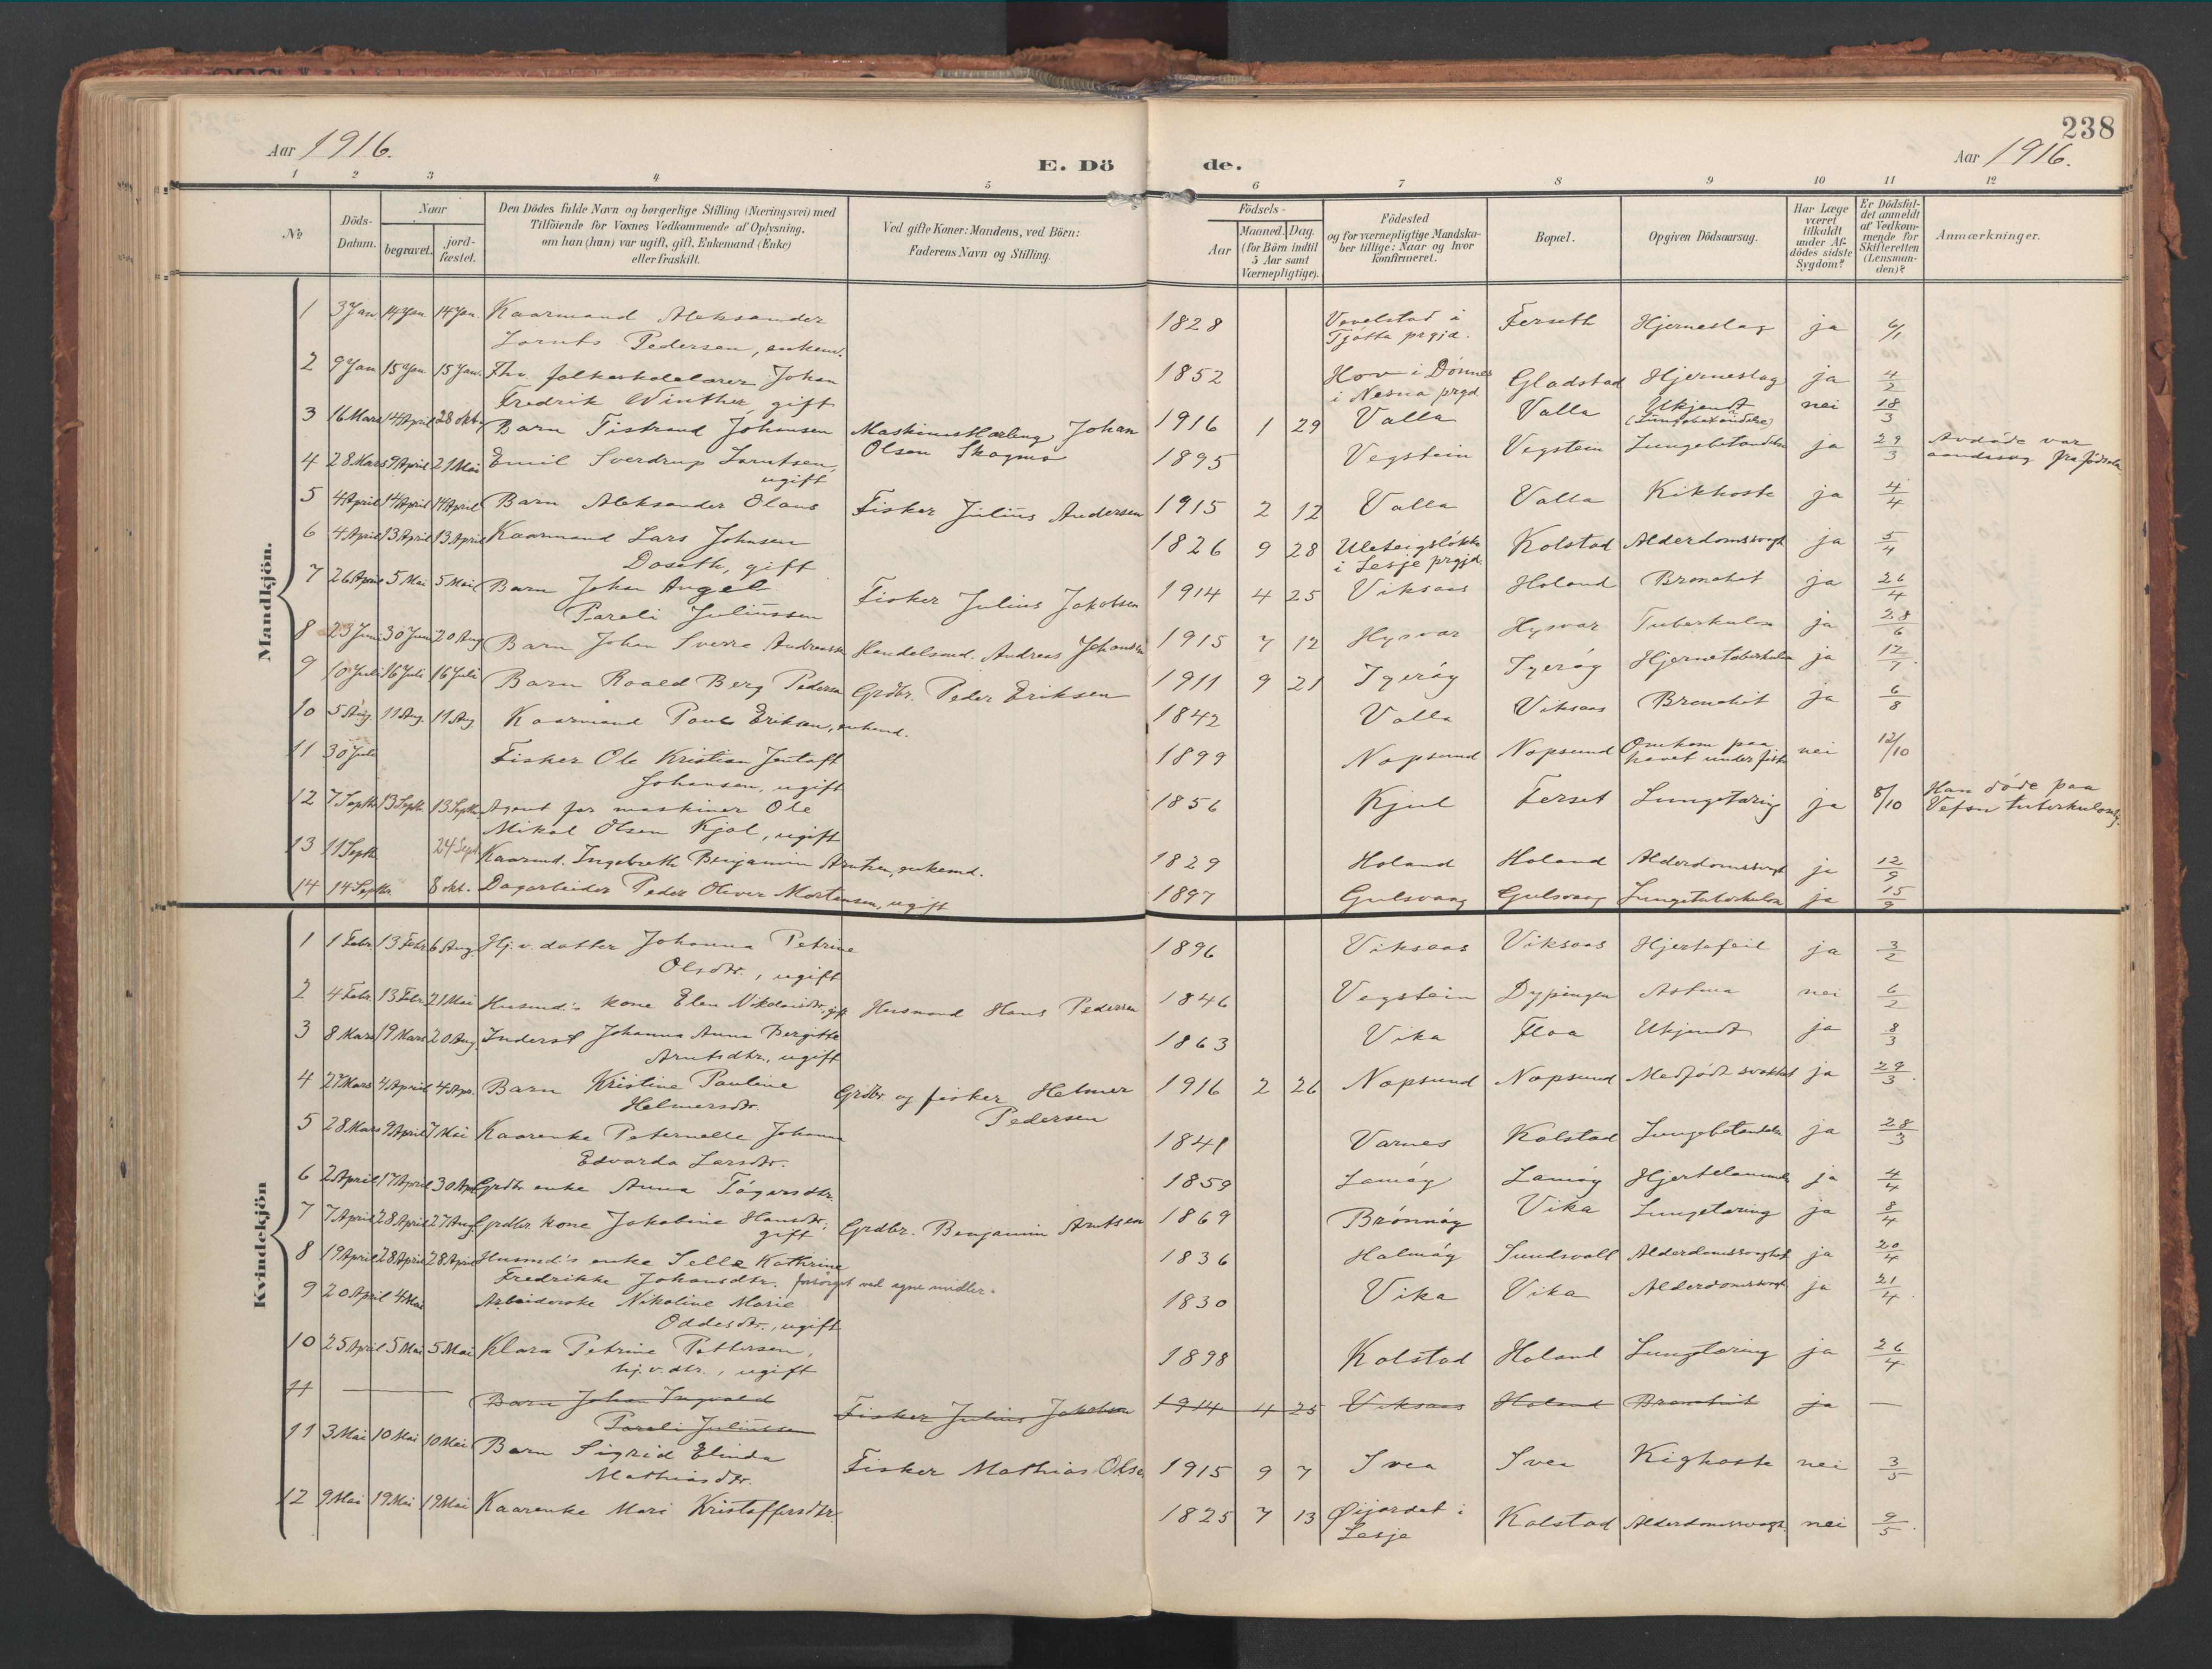 238
Aar 1916.
E. Dö de.
Aar 1916.
1 2 3 4 5 6 7 8 9 10 11 12
No
Döds-Datum.
Naar
begravet.
jord-fæstet.
Den Dödes fulde Navn og borgerlige Stilling (Næringsvei) med
Tilföiende for Voxnes Vedkommende af Oplysning,
om han (hun) var ugift, gift, Enkemand (Enke)
eller fraskilt.
Ved gifte Koner: Mandens, ved Börn:
Faderens Navn og Stilling.
Födsels-
Aar
Maaned.
Dag.
(for Börn indtil
5 Aar samt
Værnepligtige).
Födested
og for værnepligtige Mandska-
ber tillige: Naar og hvor
konfirmeret.
Bopæl.
Opgiven Dödsaarsag.
Har Læge
været
tilkaldt
under Af-
dödes sidste
Sygdom?
Er Dödsfal-
det anmeldt
af Vedkom-
mende for
Skifteretten
(Lensman-
den)?
Anmærkninger.
Mandkjön.
1 3 Jan 14 Jan 14 Jan. Kaarmand Aleksander 1828 Vevelstad i Ferseth Hjerneslag ja 6/1
Lornts Pedersen, enkem. Tjøtta prgjd.
2 9 Jan 15 Jan 15 Jan. Fhv. folkeskolelærer Johan 1852 Hov i Dønnes Gladstad Hjerneslag ja 4/2
Fredrik Winther, gift i Nesna prgd
3 16 Mars 14 April 28 okt. Barn Tistrand Johansen Maskinmstlærling Johan 1916 1 29 Valla Valla Ukjendt nei 18/3
Olsen Skogmo (Lungebetændelse)
4 28 Mars 9 April 21 Mai Emil Sverdrup Lorntsen, 1895 Vegstein Vegstein Lungebetændelse ja 29/3 Avdøde var
ugift aandssvag fra fødsela
5 4 April 14 April 14 April Barn Aleksander Olaus Fisker Julius Andersen 1915 2 12 Valla Valla Kikhoste ja 4/4
6 4 April 13 April 13 April Kaarmand Lars Johnsen 1826 9 28 Uleteigsløkka Kolstad Alderdomssvagh ja 5/4
Doseth, gift i Lesje prgjd.
7 26 April 5 Mai 5 Mai Barn Johan Angel Fisker Julius Jakobsen 1914 4 25 Viksaas Holand Bronchit ja 26/4
Pareli Juliussen
8 23 Juni 30 Juni 20 Aug Barn Johan Sverre Andreassen Handelsmd. Andreas Johansen 1915 7 12 Hysvær Hysvær Tuberkulos ja 28/6
9 10 Juli 16 Juli 16 Juli Barn Roald Berg Pedersen Grdbr. Peder Eriksen 1911 9 21 Igerøy Igerøy Hjernetuberkulos ja 12/7
10 5 Aug. 11 Aug. 11 Aug Kaarmand Paul Eriksen, enkemd. 1842 Valla Viksaas Bronchit ja 6/8
11 30 Juli Fisker Ole Kristian Jentoft 1899 Nopsund Nopsund Omkom paa nei 12/10
Johansen, ugift havet under fiske
12 7 Septb 13 Septb. 13 Septb. Agent for maskiner Ole 1856 Kjul Ferset Lungetæring ja 8/10 Han døde paa
Mikal Olsen Kjøl, ugift Vefsn tuberkuloshj.
13 11 Septb 24 Sept Kaarmd. Ingebreth Benjamin Arntsen, enkemd. 1829 Holand Holand Alderdomssvagh ja 12/9
14 14 Septbr 8 okt. Dagarbeider Peder Oliver Mortensen, ugift 1897 Gulsvaag Gulsvaag Lungetuberkulos ja 15/9
Kvindekjön
1 1 Febr. 13 Febr 6 Aug Hj.v. datter Johanna Petrine 1896 Viksaas Viksaas Hjertefeil ja 3/2
Olsdtr., ugift
2 4 Febr. 13 Febr. 21 Mai Husmd's kone Elen Nikolaisdtr. gift Husmand Hans Pedersen 1846 Vegstein Dypingen Astma nei 6/2
3 8 Mars 19 Mars 20 Aug. Inderst Johanna Anna Bergitte 1863 Vika Floa Ukjendt ja 8/3
Arntsdtr., ugift
4 27 Mars 4 April 4 Apr. Barn Kristine Pauline Grdbr og fisker Helmer 1916 2 26 Nopsund Nopsund Medfødt svakhet ja 29/3
Helmersdtr. Pedersen
5 28 Mars 9 April 7 Mai Kaarenke Peternelle Johanna 1841 Varnes Kolstad Lungebetændelse ja 28/3
Edvarda Larsdtr.
6 2 April 17 April 30 Apr Grdbr enke Anna Tøgersdtr. 1859 Lamøy Lamøy Hjertelammelse ja 4/4
7 7 April 28 April 27 Aug Grdbr. kone Jakobine Hansdtr, Grdbr. Benjamin Arntsen 1869 Brønnøy Vika Lungetæring ja 8/4
gift
8 19 April 28 April 28 April Husmd's enke Selle Kathrine 1836 Halmøy Sundsvoll Alderdomssvaghet ja 20/4
Fredrikke Johansdtr. forsørget ved egne midler.
9 20 April 4 Mai Arbeiderske Nikoline Marie 1830 Vika Vika Alderdomssvagh ja 21/4
Oddesdtr., ugift
10 25 April 5 Mai 5 Mai Klara Petrine Pettersen, 1898 Kolstad Holand Lungetæring ja 26/4
hj.v.dtr., ugift
11 — Barn Johan Ingvald Fisker Julius Jakobsen 1914 4 25 Viksaas Holand Bronchit ja —
Pareli Juliussen
11 3 Mai 10 Mai 10 Mai Barn Sigrid Elinda Fisker Mathias Olsen 1915 9 7 Ivea Ivea Kighoste nei 3/5
Mathiasdtr.
12 9 Mai 19 Mai 19 Mai Kaarenke Mari Kristoffersdtr. 1825 7 13 Øijordet i Kolstad Alderdomssvagh. nei 9/5
Lesje